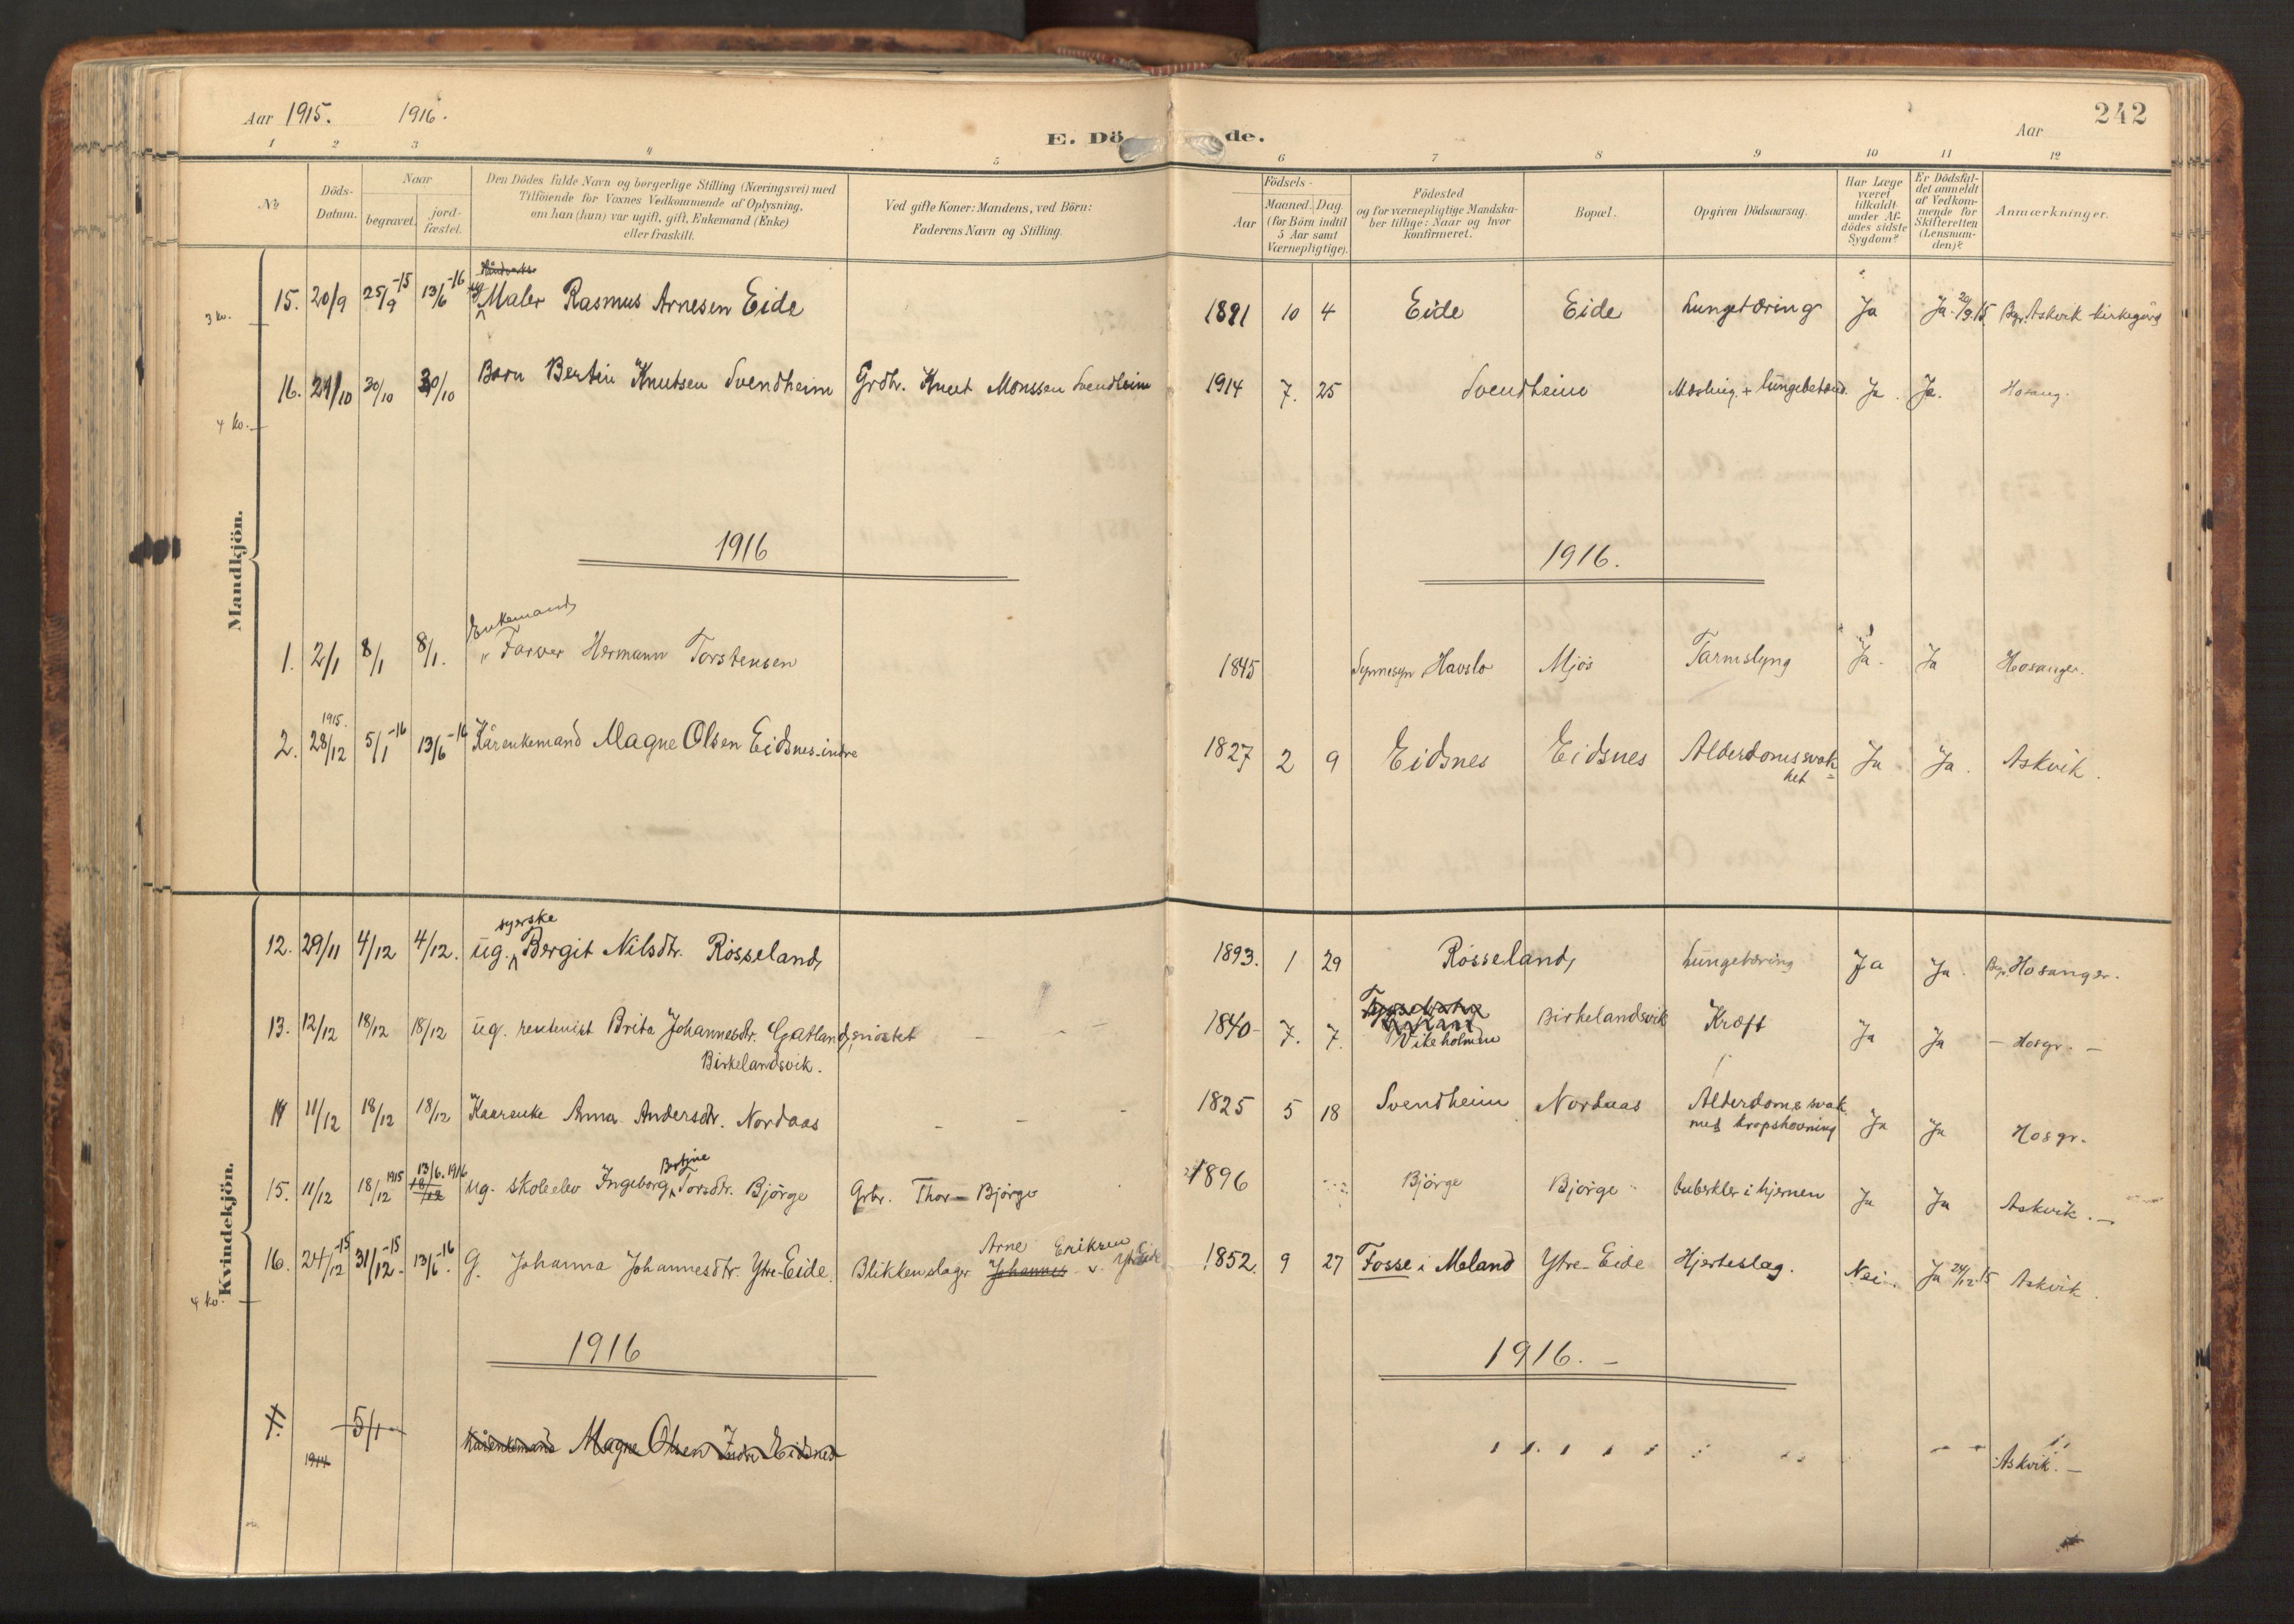 Aar 1915. 1916.
E. Dö de.
Aar
242
1 2 3 4 5 6 7 8 9 10 11 12
No
Döds-Datum.
Naar
begravet.
jord-fæstet.
Den Dödes fulde Navn og borgerlige Stilling (Næringsvei) med
Tilföiende for Voxnes Vedkommende af Oplysning,
om han (hun) var ugift, gift, Enkemand (Enke)
eller fraskilt.
Ved gifte Koner: Mandens, ved Börn:
Faderens Navn og Stilling.
Födsels-
Aar
Maaned. Dag.
(for Börn indtil
5 Aar samt
Værnepligtige).
Födested
og for værnepligtige Mandska-
ber tillige: Naar og hvor
konfirmeret.
Bopæl.
Opgiven Dödsaarsag.
Har Læge
været
tilkaldt
under Af-
dödes sidste
Sygdom?
Er Dödsfal-
det anmeldt
af Vedkom-
mende for
Skifteretten
(Lensman-
den)?
Anmærkninger.
Mandkjön.
15. 20/9 25/9 -15 13/6 -16 ug Maler Rasmus Arnesen Eide 1891 10 4 Eide Eide Lungetæring Ja Ja 20/9.15 Bgr. Askvik kirkegård
3 ko.
16. 24/10 30/10 30/10 Barn Bertin Knutsen Svendheim Grdbr. Knut Monssen Svendheim 1914 7. 25 Svendheim Mæsling. + lungebetænd. Ja. Ja. Hosang.
4 ko.
1916 1916.
Enkemand
1. 2/1 8/1 8/1. Farver Hermann Torstensen 1845 Havslo Mjös Tarmslyng Ja. Ja Hosanger.
1915.
2. 28/12 5/1 -16 13/6 -16 Kårenkemand Magne Olsen Eidsnes-indre 1827 2 9 Eidsnes Eidsnes Alderdomssvak= Ja Ja. Askvik.
het
Kvindekjön.
syerske
12. 29/11 4/12 4/12. ug. Bergit Nilsdtr. Rösseland 1893. 1 29 Rösseland, Lungetæring Ja Ja. Bgr. Hosanger.
13. 12/12 18/12 18/12 ug. rentenist Brita Johannesdtr. Gatland, - - - 1840 7. 7. Vikeholmen Birkelandsvik Kræft Ja Ja - Hosgr. -
Birkelandsvik.
14 11/12 18/12 18/12 Kaarenke Anna Andersdtr. Nordaas - - - 1825 5 18 Svendheim Nordaas Alderdomssvak Ja Ja Hosgr.
med kropshovning
Bertine
15. 11/12 18/12 1915 13/6. 1916 18/12 ug. skoleelev Ingeborg Torsdtr. Björge Grbr. Thor - Björge 1896 Björge Björge tuberkler i hjernen Ja Ja Askvik. -
Arne Eriksen
16. 24/12 -15 31/12 -15 13/6 -16 G. Johanna Johannesdtr. Ytre-Eide. Blikkenslager Johannes 1852. 9 27 Fosse i Meland Ytre-Eide Hjerteslag. Nei. Ja 24/12.15 Askvik.
4 ko.
1916 1916. -
1. 5/1 Kårenkemand Magne Olsen Indre Eidsnes Askvik. -
1914